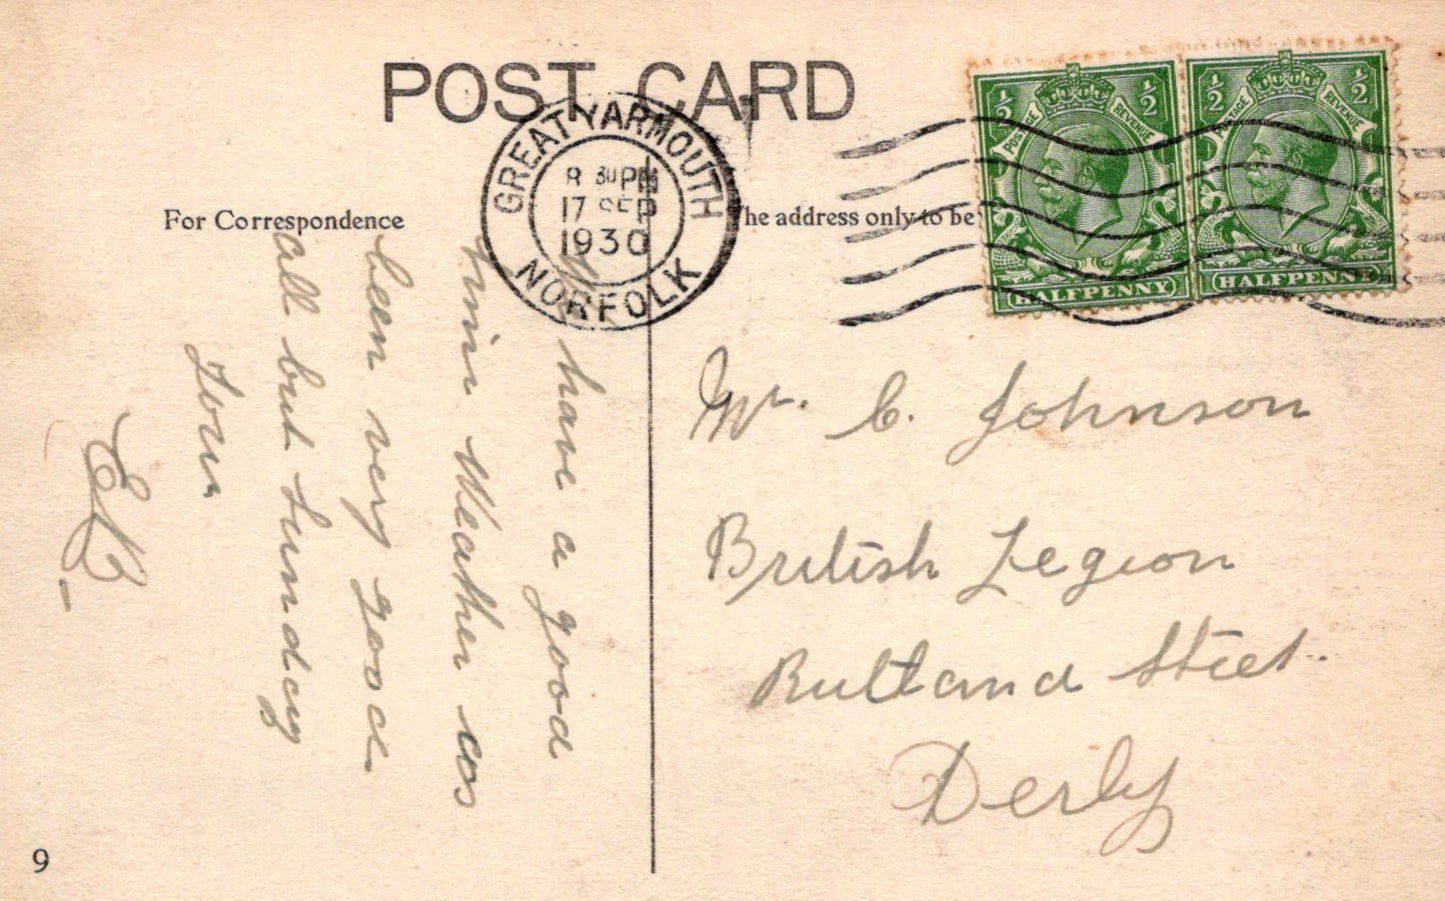 POST CARD
GREAT YARMOUTH
8 30 PM
17 SEP
1930
NORFOLK
½ POSTAGE REVENUE ½
HALFPENNY
½ POSTAGE REVENUE ½
HALFPENNY
For Correspondence
he address only to be
have a good
time Weather as
been very good
all but Sunday
Tom
Mr. C. Johnson
British Legion
Rutland Street.
Derby
9